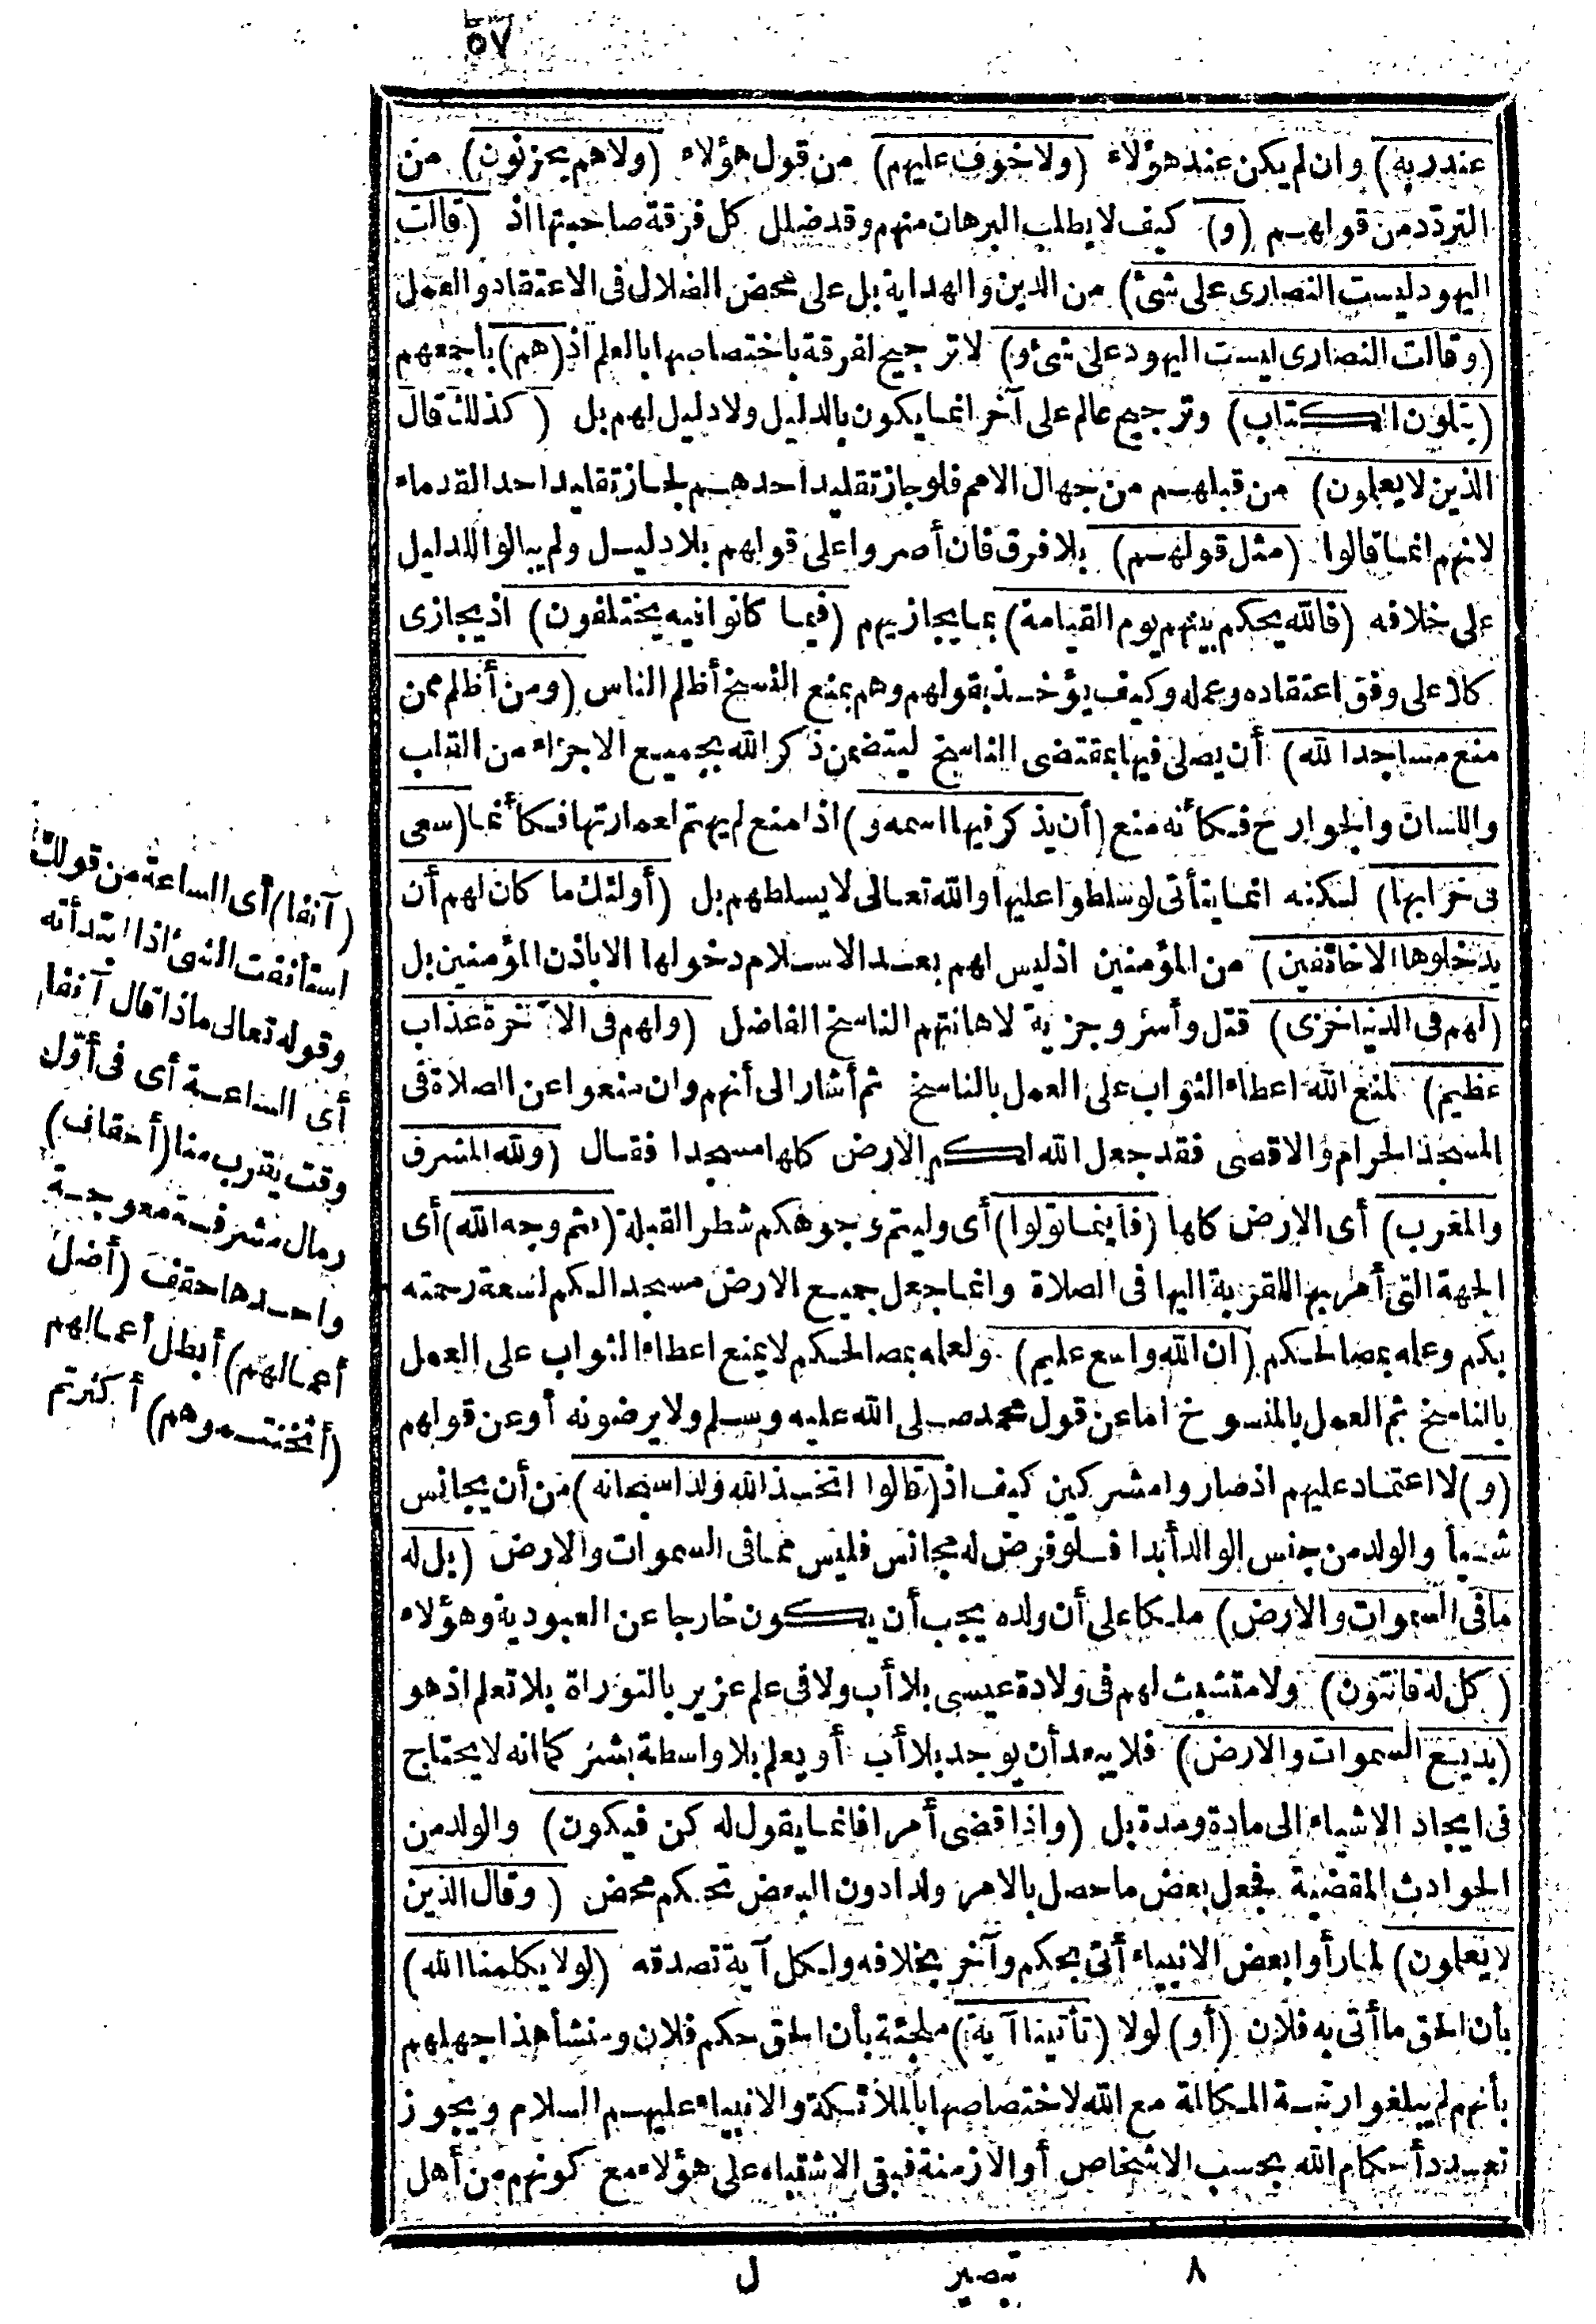 ٥٧
عند ربه) وان لم يكن عند هؤلاء (ولا خوف عليهم) من قول هؤلاء (ولا هم يحزنون) من
التردّد من قولهم (و) كيف لا يطلب البرهان منهم وقد ضلل كل فرقة صاحبتها اذ (قالت
اليهود ليست النصارى على شئ) من الدين والهداية بل على محض الضلال فى الاعتقاد والعمل
(وقالت النصارى ليست اليهود على شئ و) لا ترجيح لفرقة باختصاصها بالعلم اذ (هم) باجمعهم
(يتلون الكتاب) وترجيح عالم على آخر انما يكون بالدليل ولا دليل لهم بل (كذلك قال
الذين لا يعلمون) من قبلهم من جهال الامم فلو جاز تقليد احدهم لجاز تقليد احد القدماء
لانهم انما قالوا (مثل قولهم) بلا فرق فان أصروا على قولهم بلا دليل ولم يبالوا للدليل
على خلافه (فالله يحكم بينهم يوم القيامة) بما يجازيهم (فيما كانوا فيه يختلفون) اذ يجازى
كلا على وفق اعتقاده وعمله وكيف يؤخذ بقولهم وهم بمنع النسخ أظلم الناس (ومن أظلم ممن
منع مساجد الله) أن يصلى فيها بمقتضى الناسخ ليتضمن ذكر الله بجميع الاجزاء من القلب
واللسان والجوارح فكأنه منع (أن يذكر فيها اسمه و) اذا منع لم يهتم لعمارتها فكأنما (سعى
فى خرابها) لكنه انما يتأتى لو سلطوا عليها والله تعالى لا يسلطهم بل (أولئك ما كان لهم أن
يدخلوها الا خائفين) من المؤمنين اذ ليس لهم بعد الاسلام دخولها الا باذن المؤمنين بل
(لهم فى الدنيا خزى) قتل وأسر وجزية لاهانتهم الناسخ الفاضل (ولهم فى الآخرة عذاب
عظيم) لمنع الله اعطاء الثواب على العمل بالناسخ ثم أشار الى أنهم وان منعوا عن الصلاة فى
المسجد الحرام والاقصى فقد جعل الله لكم الارض كلها مسجدا فقال (ولله المشرق
والمغرب) أى الارض كلها (فأينما تولوا) أى وليتم وجوهكم شطر القبلة (فثم وجه الله) أى
الجهة التى أمر بها للقربة اليها فى الصلاة وانما جعل جميع الارض مسجدا لكم لسعة رحمته
بكم وعلمه بمصالحكم (ان الله واسع عليم) ولعلمه بمصالحكم لا يمنع اعطاء الثواب على العمل
بالناسخ ثم العمل بالمنسوخ اما عن قول محمد صلى الله عليه وسلم ولا يرضونه أو عن قولهم
(و) لا اعتماد عليهم اذ صاروا مشركين كيف اذ (قالوا اتخذ الله ولدا سبحانه) من أن يجانس
شيأ والولد من جنس الوالد أبدا فلو فرض له مجانس فليس مما فى السموات والارض (بل له
ما فى السموات والارض) ملكا على أن ولده يجب أن يكون خارجا عن العبودية وهؤلاء
(كل له قانتون) ولا متشبث لهم فى ولادة عيسى بلا أب ولا فى علم عزير بالتوراة بلا تعلم اذ هو
(بديع السموات والارض) فلا يبعد أن يوجد بلا أب أو يعلم بلا واسطة بشر كما انه لا يحتاج
فى ايجاد الاشياء الى مادة ومدة بل (واذا قضى أمرا فانما يقول له كن فيكون) والولد من
الحوادث المقضية فجعل بعض ما حصل بالامر ولدا دون البعض تحكم محض (وقال الذين
لا يعلمون) لما رأوا بعض الانبياء أتى بحكم وآخر بخلافه ولكل آية تصدقه (لولا يكلمنا الله)
بأن الحق ما أتى به فلان (أو) لولا (تأتينا آية) ملجئة بأن الحق حكم فلان ومنشأ هذا جهلهم
بأنهم لم يبلغوا رتبة المكالمة مع الله لاختصاصها بالملائكة والانبياء عليهم السلام ويجوز
تعدد أحكام الله بحسب الاشخاص أو الازمنة فبقى الاشتباه على هؤلاء مع كونهم من أهل
(آنفا) أى الساعة من قولك
استأنفت الشئ اذا ابتدأته
وقوله تعالى ماذا قال آنفا
أى الساعة أى فى أوّل
وقت يقرب منا (أحقاف)
رمال مشرفة معوجة
واحدها حقف (أضل
أعمالهم) أبطل أعمالهم
(أثخنتموهم) أكثرتم
٨ تبصير ل